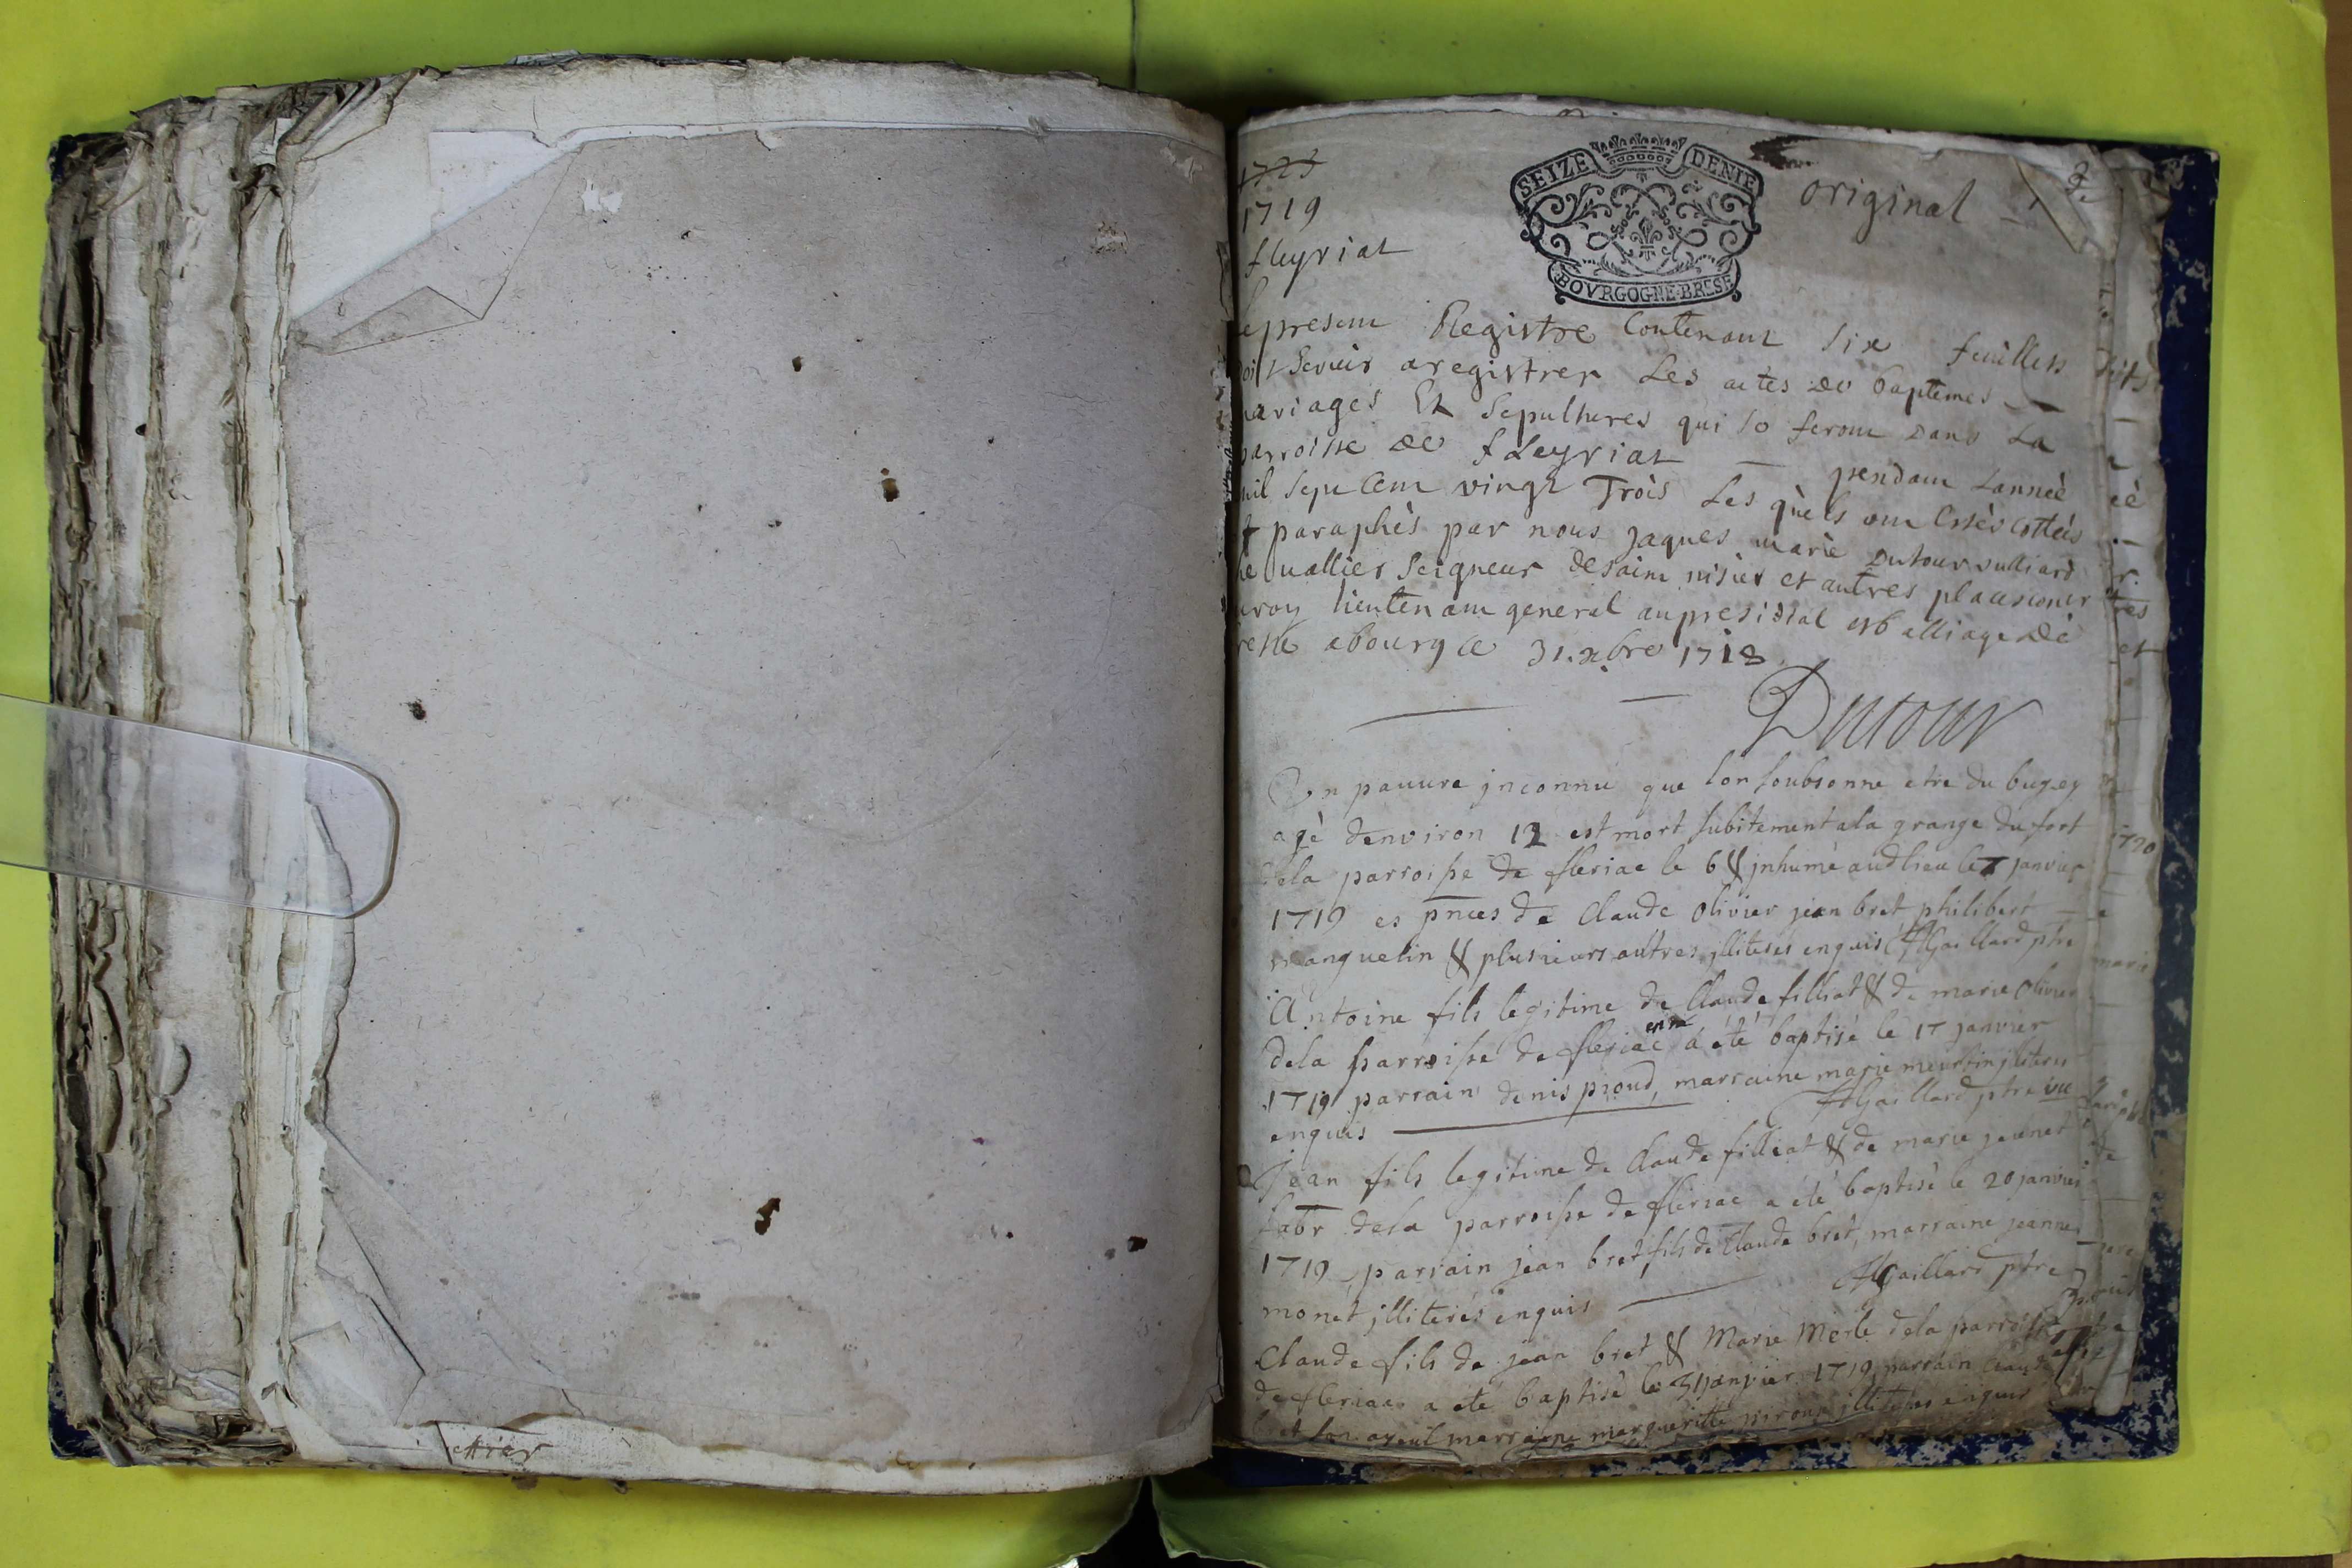 1723
1719
fleyriat
SEIZE DENIE
BOVRGOGNE·BRESE
original
epresent Registre Contenant six feuillets
doit Servir aregistrer Les actes de baptemes
mariages Et Sepultures qui se feront dans La
parroisse de fleyriat — pendant Lanneè
mil sept Cent vingt Trois Les quels ont Estès cottès
et paraphès par nous jaques marie Dutour vulliard
chevallier Seigneur desaint nisier et autres places
duroy lieutenant general aupresidial et balliage de
resse abourg ce 31. xbre 1718
Dutour
Un pauure jnconnu que lon soubsonne etre du bugey
agè denviron 12 est mort subitement ala grange du fort
dela parroisse de fleriac le 6 & jnhumè audlieu le 7 janvier
1719 es pnces de Claude Olivier jean bret philibert
manguelin & plusieurs autres jlliterés enquis AGaillard ptre
Antoine fils legitime de Claude filliat & de marie Olivier
dela parroisse de fleriac a été baptisé le 17 janvier
1719 parrain denis proud, marraine marie jlliteres
enquis AGaillard ptre vic
Jean fils legitime de Claude filliat & de marie jeunet
labr dela parroisse de fleriac a été baptisè le 20 janvier
1719 parrain jean bret fils de Claude bret, marraine jeanne
monet jlliterés enquis AGaillard ptre
Claude fils de jean bret & Marie Merle dela parroisse
de fleriac a eté baptisè le 31 janvier 1719 parrain Claude
bret son ayeul marraine margueritte jlliteres enquis
1720